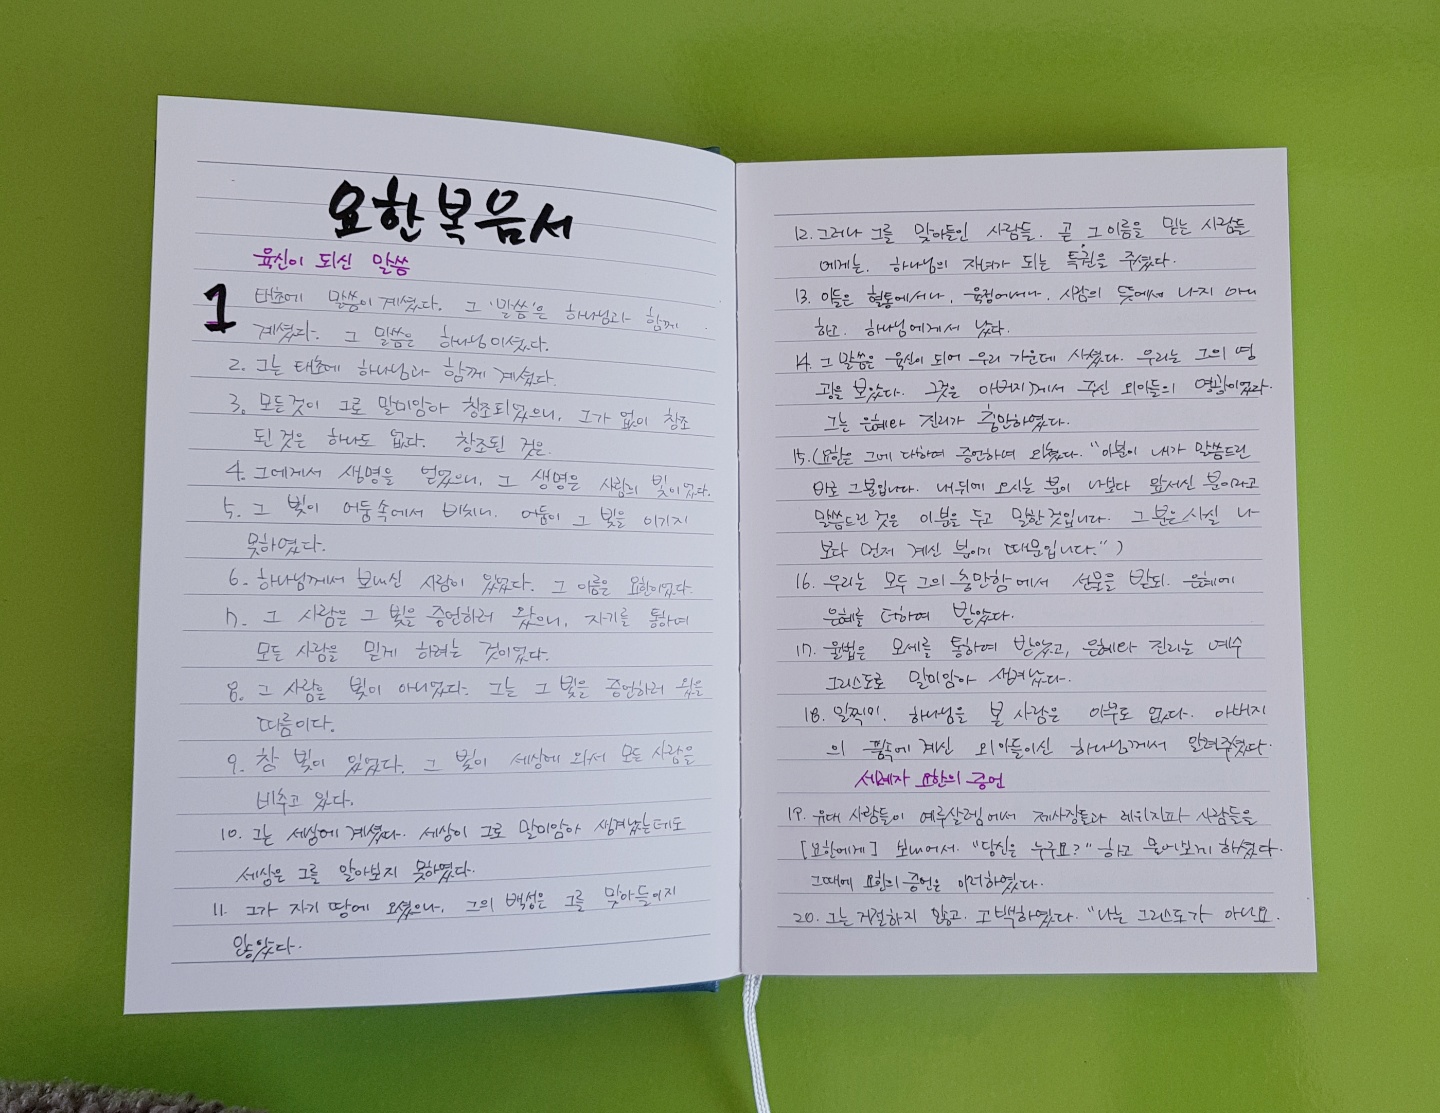 요한복음서
육신이 되신 말씀
1 태초에 말씀이 계셨다. 그 '말씀'은 하나님과 함께
계셨다. 그 말씀은 하나님이셨다.
2. 그는 태초에 하나님과 함께 계셨다.
3. 모든것이 그로 말미암아 창조되었으니, 그가 없이 창조
된 것은 하나도 없다. 창조된 것은.
4. 그에게서 생명을 얻었으니, 그 생명은 사람의 빛이었다.
5. 그 빛이 어둠속에서 비치니, 어둠이 그 빛을 이기지
못하였다.
6. 하나님께서 보내신 사람이 있었다. 그 이름은 요한이었다.
7. 그 사람은 그 빛을 증언하러 왔으니, 자기를 통하여
모든 사람을 믿게 하려는 것이었다.
8. 그 사람은 빛이 아니었다. 그는 그 빛을 증언하러 왔을
따름이다.
9. 참 빛이 있었다. 그 빛이 세상에 와서 모든 사람을
비추고 있다.
10. 그는 세상에 계셨다. 세상이 그로 말미암아 생겨났는데도
세상은 그를 알아보지 못하였다.
11. 그가 자기 땅에 오셨으나, 그의 백성은 그를 맞아들이지
않았다.
12. 그러나 그를 맞아들인 사람들. 곧 그 이름을 믿는 사람들
에게는. 하나님의 자녀가 되는 특권을 주셨다.
13. 이들은 혈통에서나, 육정에서나, 사람의 뜻에서 나지 아니
하고. 하나님에게서 났다.
14. 그 말씀은 육신이 되어 우리 가운데 사셨다. 우리는 그의 영
광을 보았다. 그것은 아버지께서 주신 외아들의 영광이었다.
그는 은혜와 진리가 충만하였다.
15. (요한은 그에 대하여 증언하여 외쳤다. "이분이 내가 말씀드린
바로 그분입니다. 내 뒤에 오시는 분이 나보다 앞서신 분이라고
말씀드린 것은 이분을 두고 말한 것입니다. 그 분은 사실 나
보다 먼저 계신 분이기 때문입니다.")
16. 우리는 모두 그의 충만함에서 선물을 받되. 은혜에
은혜를 더하여 받았다.
17. 율법은 모세를 통하여 받았고, 은혜와 진리는 예수
그리스도로 말미암아 생겨났다.
18. 일찍이. 하나님을 본 사람은 아무도 없다. 아버지
의 품속에 계신 외아들이신 하나님께서 알려주셨다.
세례자 요한의 증언
19. 유대 사람들이 예루살렘에서 제사장들과 레위지파 사람들을
[요한에게] 보내어서. "당신은 누구요?" 하고 물어보게 하셨다.
그때에 요한의 증언은 이러하였다.
20. 그는 거절하지 않고. 고백하였다. "나는 그리스도가 아니요.